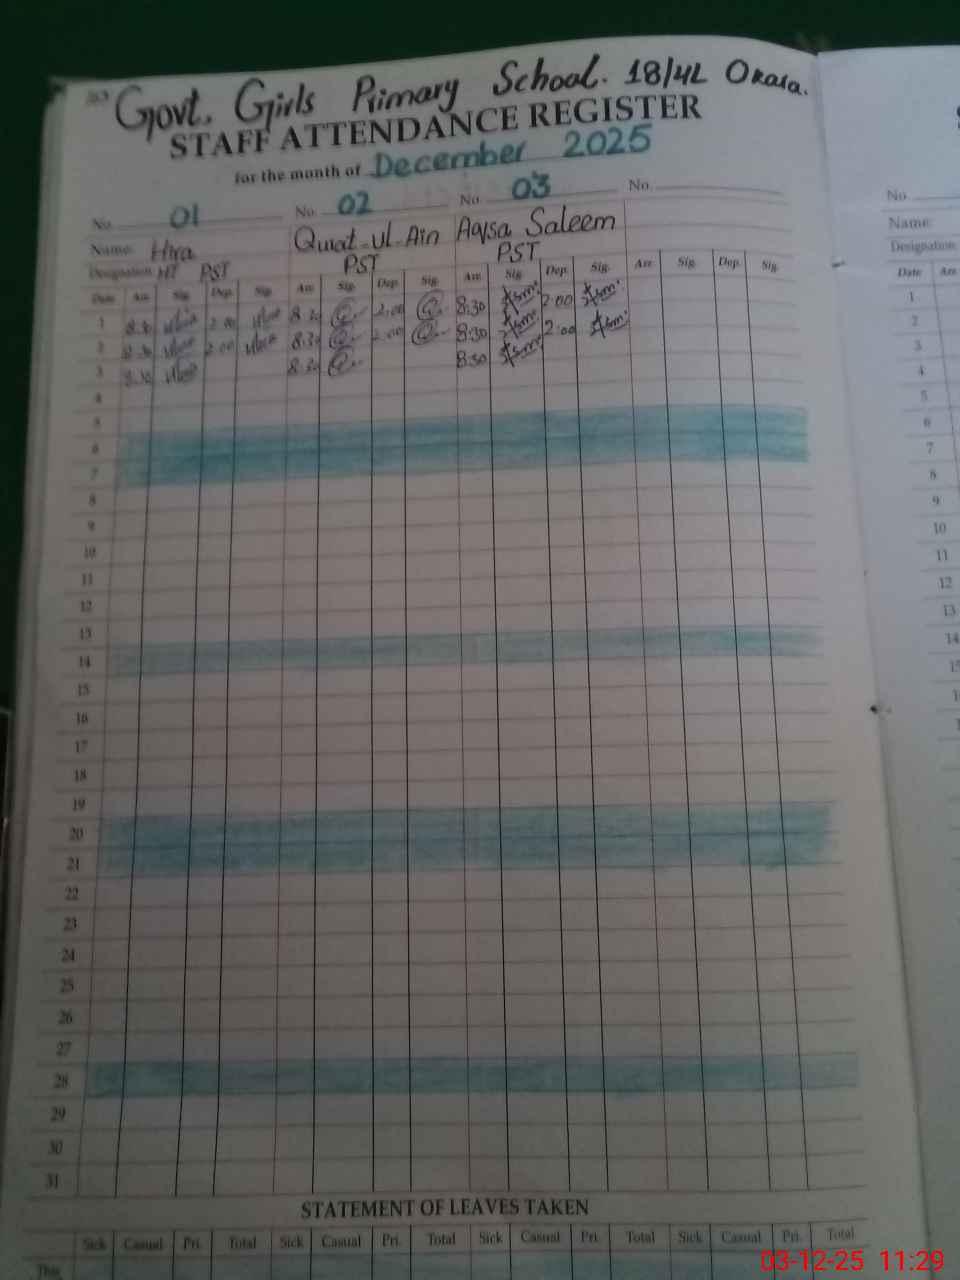 Govt. Girls Primary School. 18/4L Okara.
STAFF ATTENDANCE REGISTER
for the month of December 2025
No. 01 No. 02 No. 03 No.
Name: Hira Qurat-ul-Ain Aqsa Saleem
Designation HT PST PST PST
Date Arr. Sig. Dep. Sig. Arr. Sig. Dep. Sig. Arr. Sig. Dep. Sig. Arr. Sig. Dep. Sig.
1 8.30 2.00 8.30 2.00 8:30 2:00
2 8.30 2.00 8.30 2.00 8:30 2:00
3 8.30 8.30 8:30
4
5
6
7
8
9
10
11
12
13
14
15
16
17
18
19
20
21
22
23
24
25
26
27
28
29
30
31
STATEMENT OF LEAVES TAKEN
Sick Casual Pri. Total Sick Casual Pri. Total Sick Casual Pri. Total Sick Casual Pri. Total
This
No.
Name:
Designation
Date Arr.
1
2
3
4
5
6
7
8
9
10
11
12
13
14
03-12-25 11:29